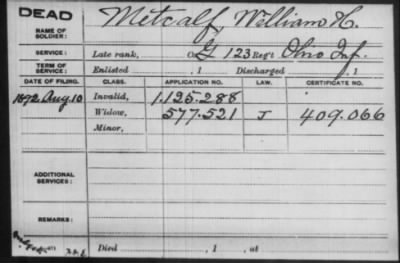 DEAD
NAME OF SOLDIER: Metcalf, William H.
SERVICE: Late rank, Co G, 123 Reg't Ohio Inf.
TERM OF SERVICE: Enlisted , 1 Discharged , 1
DATE OF FILING. CLASS. APPLICATION NO. LAW. CERTIFICATE NO.
1892, Aug. 10 Invalid, 1.125.288
Widow, 577.521 J 409.066
Minor,
ADDITIONAL SERVICES:
REMARKS:
Died , 1 , at